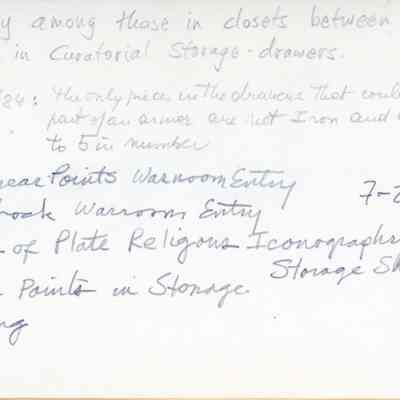 y among those in closets between
in Curatorial Storage - drawers.
/24: the only pieces in the drawers that coul
part of an armor are not Iron and
to 5 in number
pear Points Warroom Entry 7-2
hook Warroom Entry
of Plate Religous Iconographs
Storage Sh
Points in Storage.
ng